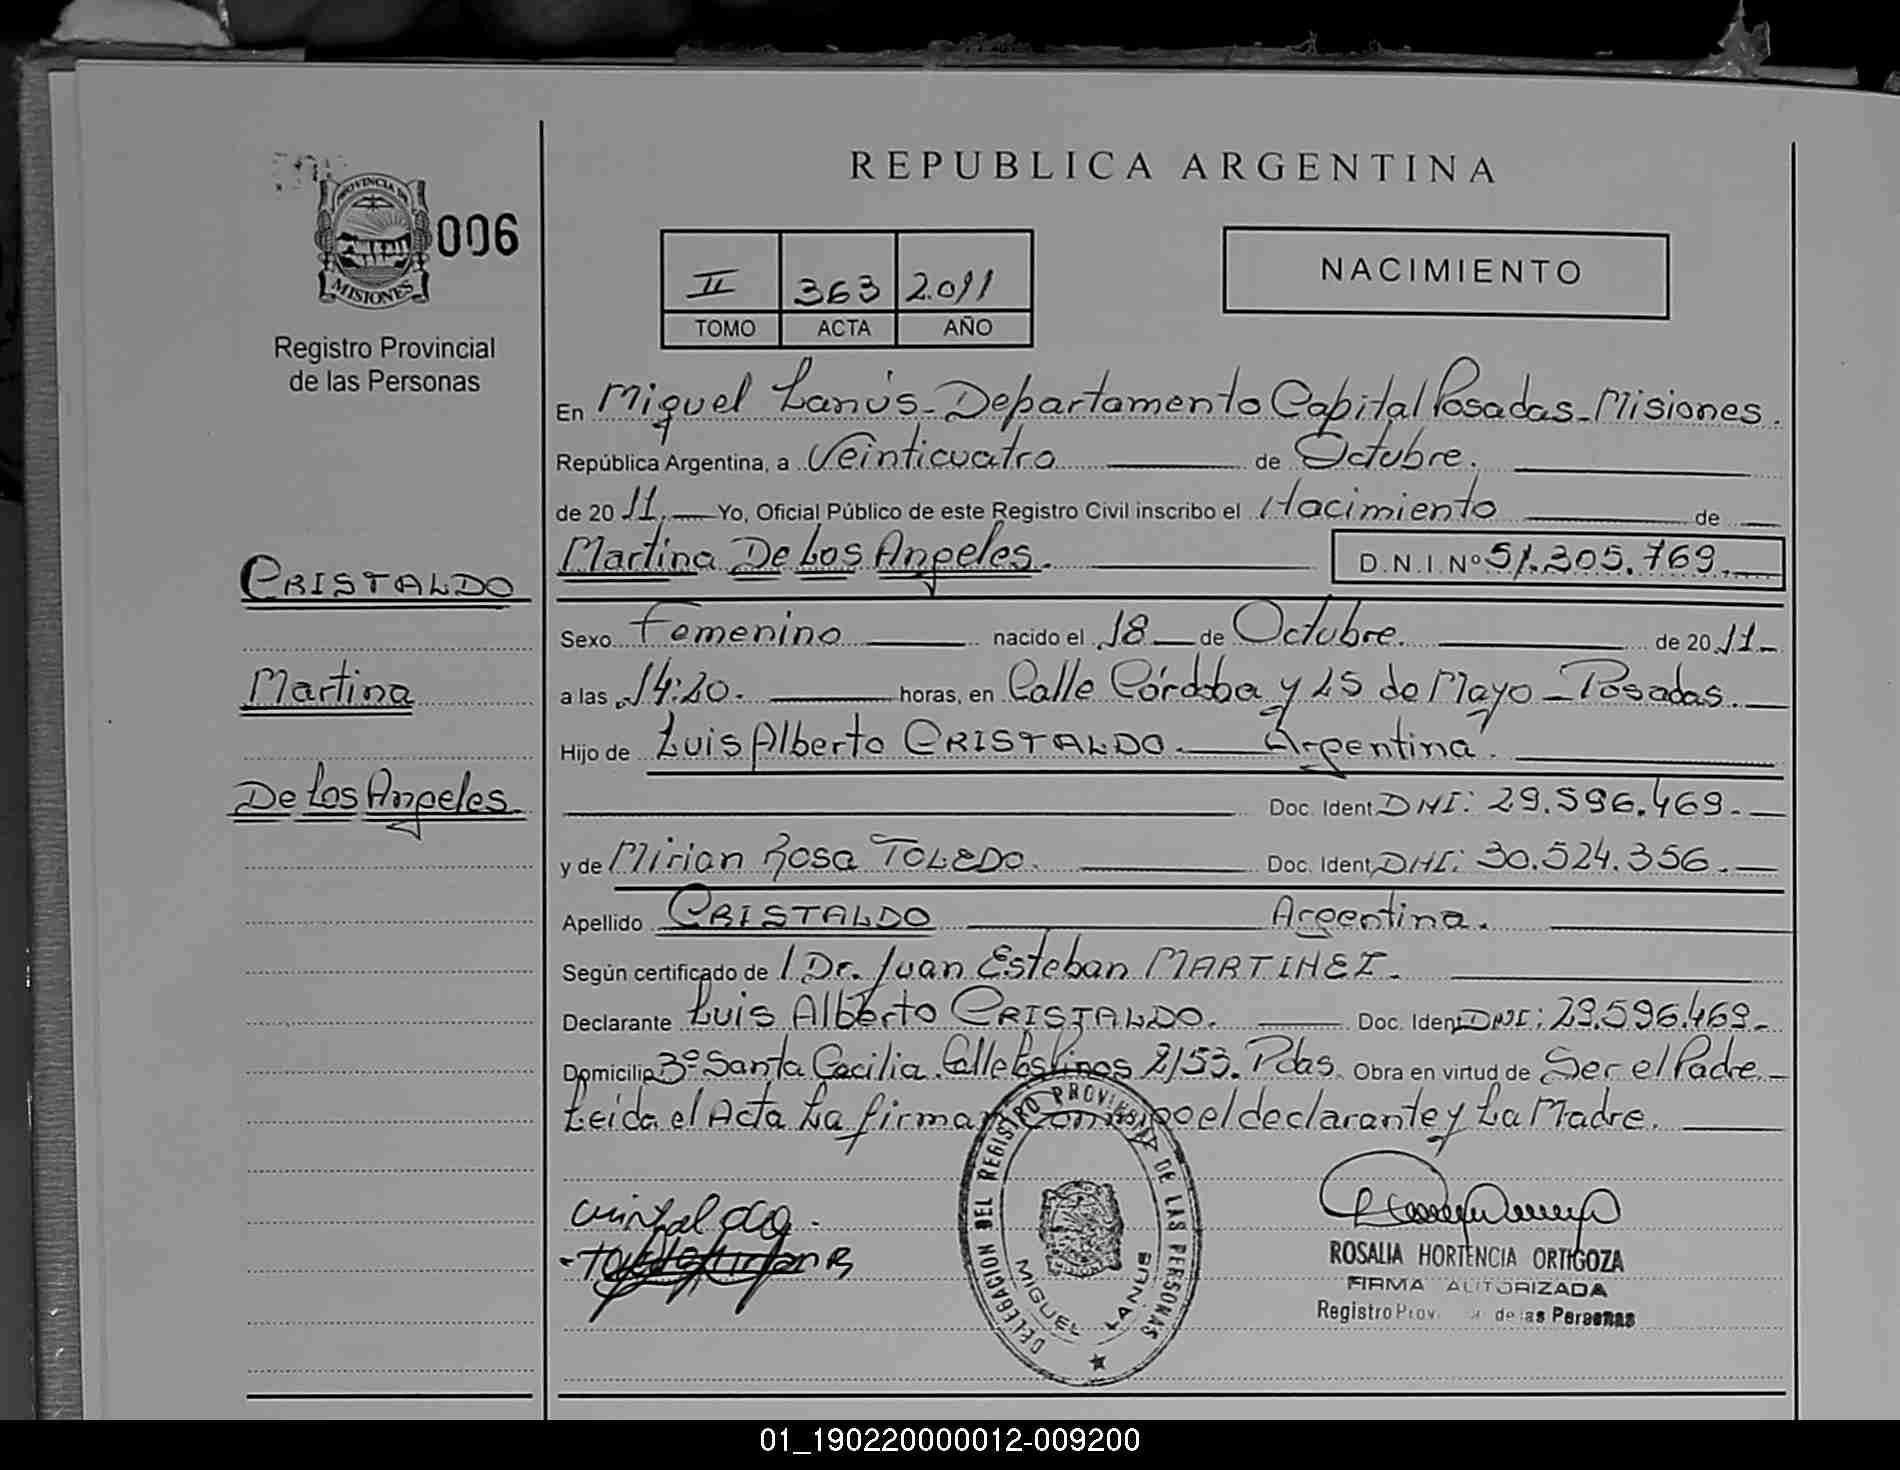 REPUBLICA ARGENTINA
PROVINCIA DE
MISIONES
006
Registro Provincial
de las Personas
II 363 2.011
TOMO ACTA AÑO
NACIMIENTO
En Miguel Lanús - Departamento Capital Posadas - Misiones.
República Argentina, a Veinticuatro de Octubre.
de 20 11. Yo, Oficial Público de este Registro Civil inscribo el Nacimiento de
Martina De Los Angeles. D.N.I. Nº 51.305.769.
CRISTALDO
Martina
De Los Angeles
Sexo Femenino nacido el 18 de Octubre. de 20 11
a las 14:20. horas, en Calle Córdoba y 25 de Mayo - Posadas.
Hijo de Luis Alberto CRISTALDO. Argentina.
Doc. Ident. DNI: 29.596.469.
y de Mirian Rosa TOLEDO. Doc. Ident. DNI: 30.524.356.
Apellido CRISTALDO Argentina.
Según certificado de Dr. Juan Esteban MARTINEZ.
Declarante Luis Alberto CRISTALDO. Doc. Iden DNI: 29.596.469
Domicilio Bº Santa Cecilia. Calle Los Pinos 2153. Pdas. Obra en virtud de Ser el Padre
Leida el Acta La firman Conmigo el declarante y La Madre.
DELEGACION DEL REGISTRO PROVINCIAL DE LAS PERSONAS
MIGUEL LANUS
ROSALIA HORTENCIA ORTIGOZA
FIRMA AUTORIZADA
Registro Prov. de las Personas
01_190220000012-009200